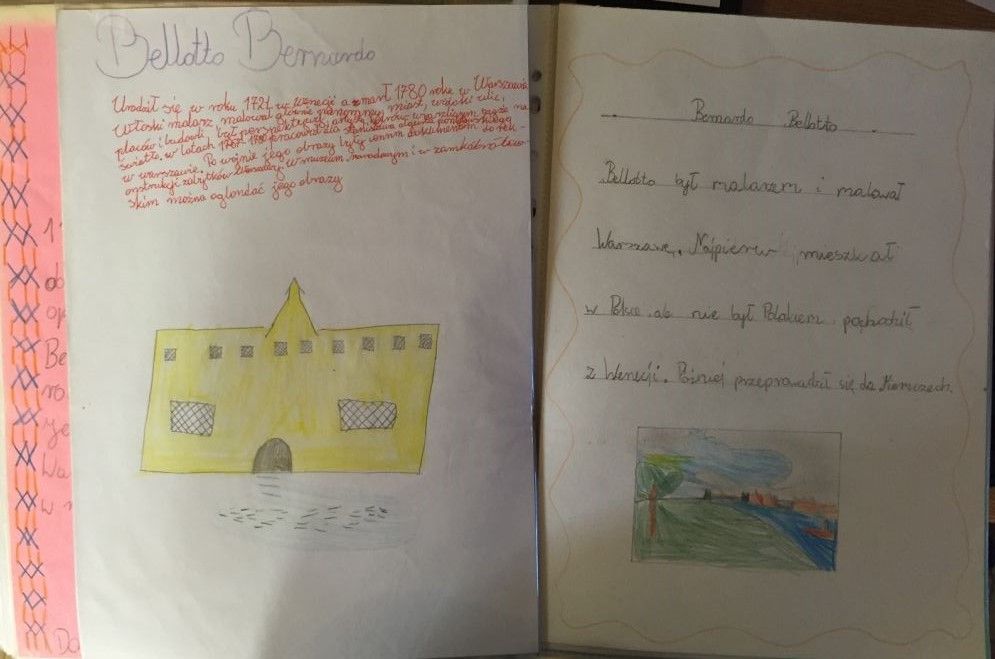 Bellotto Bernardo
Urodził się w roku 1721 w Wenecji a zmarł 1780 roku w Warszawie
Włoski malarz malował głównie panoramy miast, widoki ulic,
placów i budowli. był perspektywy
światło. w latach 1767-1780 pracował dla stanisława
w warszawie. Po wojnie jego obrazy były cennym dokumentem do rek-
onstrukcji zabytków Warszawy. w muzeum narodowym i w zamku królew-
skim można oglondać jego obrazy
Bernardo Bellotto
Bellotto był malarzem i malował
Warszawę. Najpierw mieszkał
w Polsce ale nie był Polakiem, pochodził
z Wenecji. Później przeprowadził się do Niemczech.
1
do
op
Be
ro
Wa
w
Do